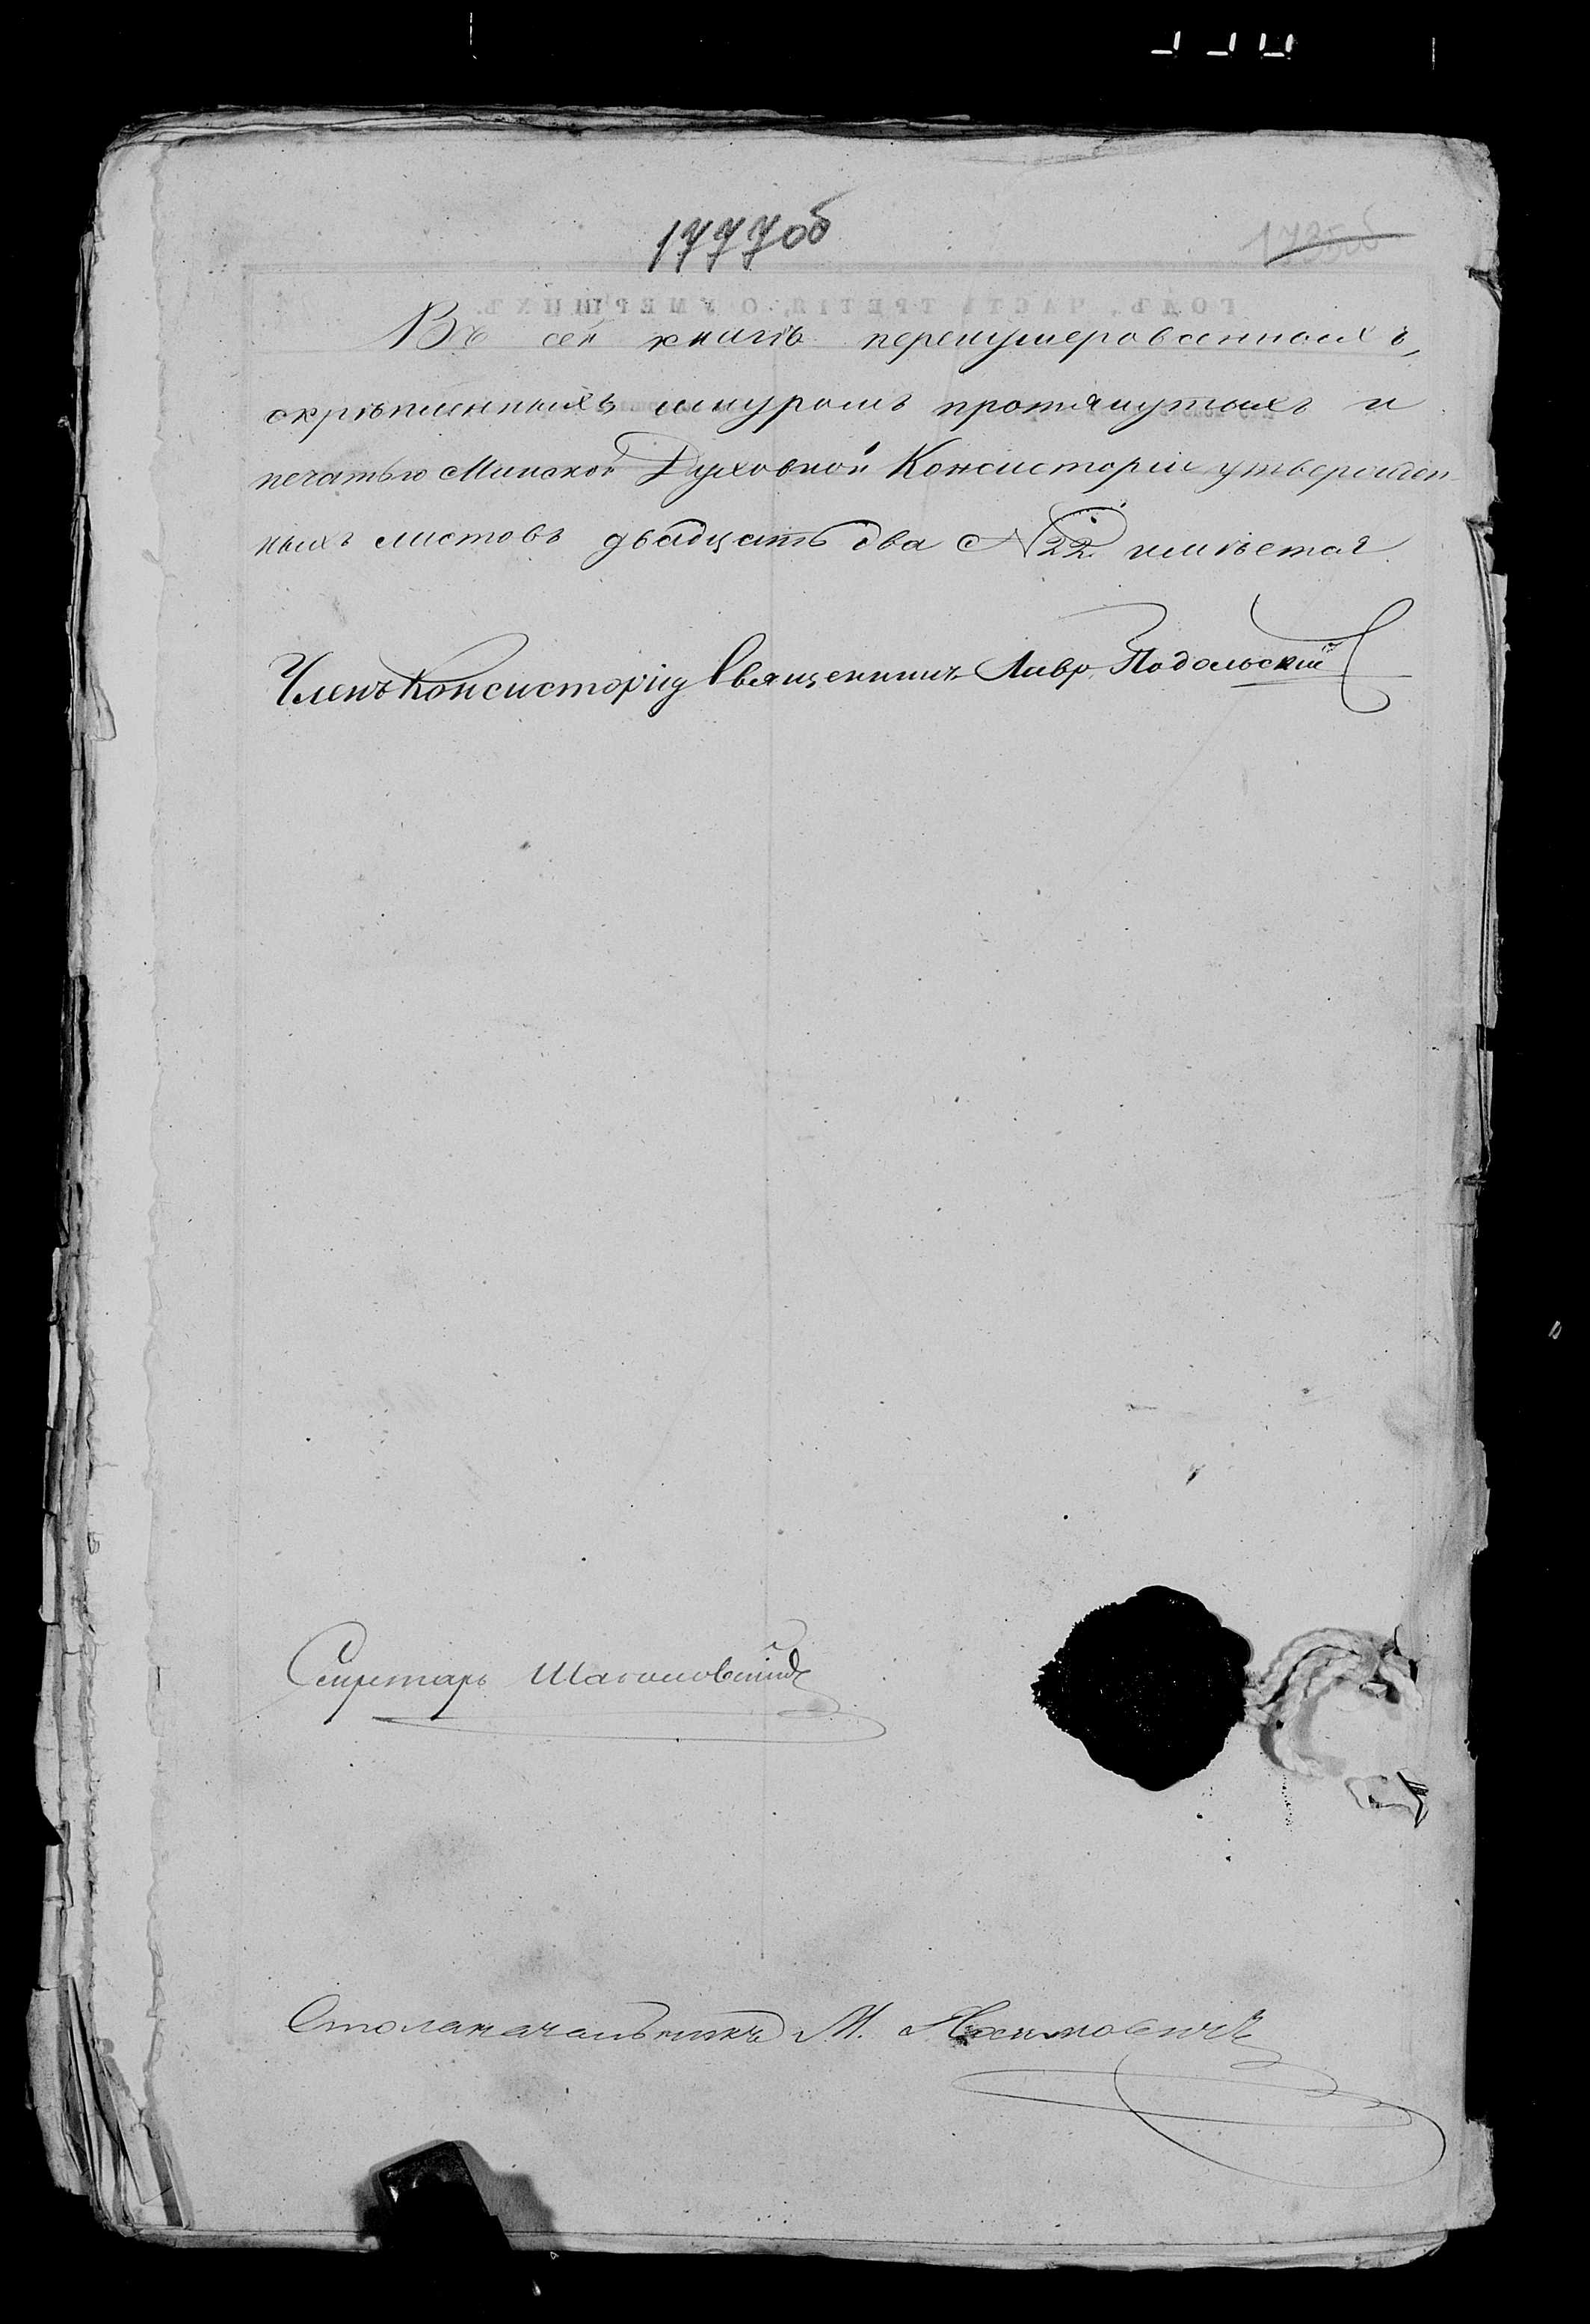 1777об
1735об
Въ сей книгѣ перенумерованныхъ,
скрѣпленныхъ шнуромъ протянутыхъ и
печатью Минской Духовной Консисторіи утвержден-
ныхъ листовъ двадцать два № 22 имѣется
Членъ Консисторіи Священникъ Лавр. Подольскій
Секретарь
Столоначальникъ М.